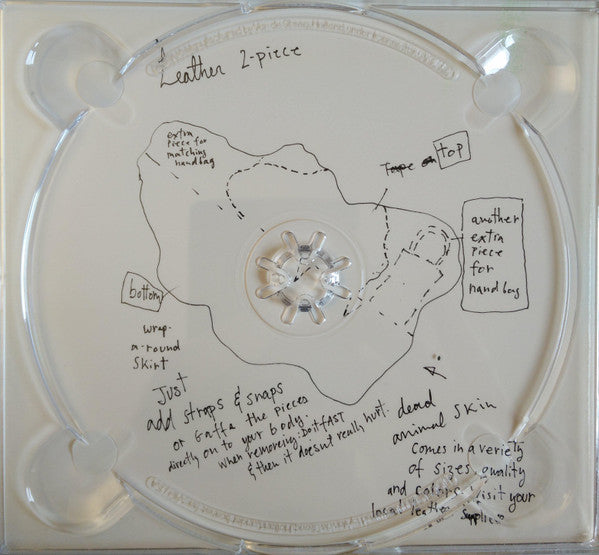 Leather 2-piece
extra
piece for
matching
handbag
Tape on
top
another
extra
piece
for
handbag
bottom
wrap-
a-round
skirt
Just
add straps & snaps
or Gaffa the pieces
directly on to your body.
when removeing: Do it FAST
& then it doesn't really hurt.
dead
animal skin
comes in a veriety
of sizes, quality
and color
visit your
local leather supplier